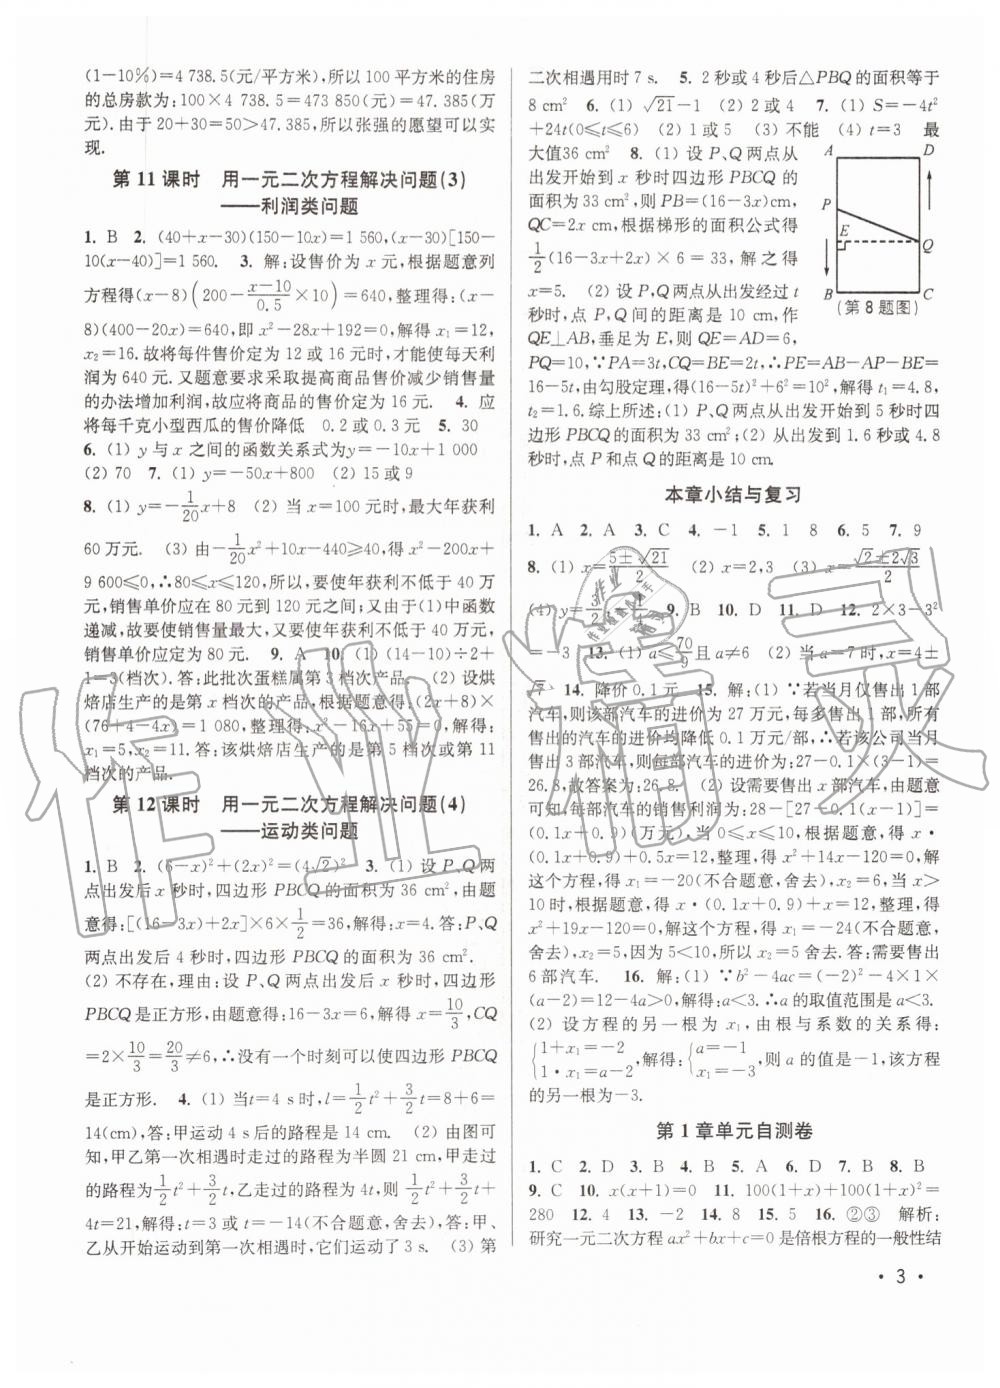 (1-10%)=4 738.5(元/平方米),所以100平方米的住房
的总房款为:100×4 738.5=473 850(元)=47.385(万
元).由于20+30=50>47.385,所以张强的愿望可以实
现.
第11课时 用一元二次方程解决问题(3)
——利润类问题
1. B 2. (40+x-30)(150-10x)=1 560,(x-30)[150-
10(x-40)]=1 560. 3. 解:设售价为x元,根据题意列
方程得(x-8)(200-\frac{x-10}{0.5}×10)=640,整理得:(x-
8)(400-20x)=640,即x²-28x+192=0,解得x₁=12,
x₂=16.故将每件售价定为12或16元时,才能使每天利
润为640元.又题意要求采取提高商品售价减少销售量
的办法增加利润,故应将商品的售价定为16元. 4. 应
将每千克小型西瓜的售价降低 0.2或0.3元 5. 30
6. (1) y与x之间的函数关系式为y=-10x+1 000
(2) 70 7. (1) y=-50x+800 (2) 15或9
8. (1) y=-\frac{1}{20}x+8 (2) 当x=100元时,最大年获利
60万元. (3) 由-\frac{1}{20}x²+10x-440≥40,得x²-200x+
9 600≤0,∴80≤x≤120,所以,要使年获利不低于40万
元,销售单价应在80元到120元之间;又由(1)中函数
递减,故要使销售量最大,又要使年获利不低于40万元,
销售单价应定为80元. 9. A 10. (1) (14-10)÷2+
1=3(档次).答:此批次蛋糕属第3档次产品. (2) 设烘
焙店生产的是第x档次的产品.根据题意得:(2x+8)×
(76+4-4x)=1 080,整理得:x²-16x+55=0,解得:
x₁=5,x₂=11.答:该烘焙店生产的是第5档次或第11
档次的产品.
第12课时 用一元二次方程解决问题(4)
——运动类问题
1. B 2. (6-x)²+(2x)²=(4√2)² 3. (1) 设P、Q两
点出发后x秒时,四边形PBCQ的面积为36 cm²,由题
意得:[(16-3x)+2x]×6×\frac{1}{2}=36,解得:x=4.答:P、Q
两点出发后4秒时,四边形PBCQ的面积为36 cm².
(2) 不存在,理由:设P、Q两点出发后x秒时,四边形
PBCQ是正方形,由题意得:16-3x=6,解得:x=\frac{10}{3},CQ
=2×\frac{10}{3}=\frac{20}{3}≠6,∴没有一个时刻可以使四边形PBCQ
是正方形. 4. (1) 当t=4 s时,l=\frac{1}{2}t²+\frac{3}{2}t=8+6=
14(cm),答:甲运动4 s后的路程是14 cm. (2) 由图可
知,甲乙第一次相遇时走过的路程为半圆21 cm,甲走过
的路程为\frac{1}{2}t²+\frac{3}{2}t,乙走过的路程为4t,则\frac{1}{2}t²+\frac{3}{2}t+
4t=21,解得:t=3或t=-14(不符合题意,舍去).答:甲、
乙从开始运动到第一次相遇时,它们运动了3 s. (3) 第
二次相遇用时7 s. 5. 2秒或4秒后△PBQ的面积等于
8 cm² 6. (1) √21-1 (2) 2或4 7. (1) S=-4t²
+24t(0≤t≤6) (2) 1或5 (3) 不能 (4) t=3 最
大值36 cm² 8. (1) 设P、Q两点从
出发开始到x秒时四边形PBCQ的
面积为33 cm²,则PB=(16-3x)cm,
QC=2x cm,根据梯形的面积公式得
\frac{1}{2}(16-3x+2x)×6=33,解之得
x=5. (2) 设P、Q两点从出发经过t
秒时,点P、Q间的距离是10 cm,作
QE⊥AB,垂足为E,则QE=AD=6,
A D
P
E
Q
B C
(第8题图)
PQ=10,∵PA=3t,CQ=BE=2t,∴PE=AB-AP-BE=
16-5t,由勾股定理,得(16-5t)²+6²=10²,解得t₁=4.8,
t₂=1.6.综上所述:(1) P、Q两点从出发开始到5秒时四
边形PBCQ的面积为33 cm²;(2) 从出发到1.6秒或4.8
秒时,点P和点Q的距离是10 cm.
本章小结与复习
1. A 2. A 3. C 4. -1 5. 1 8 6. 5 7. 9
8. (1) x=\frac{5±√21}{2} (2) x=2,3 (3) x=\frac{√2±2√3}{2}
(4) y=\frac{3}{2}, 9. B 10. D 11. D 12. 2×3-3²
=-3 13. (1) a≤\frac{70}{9}且a≠6 (2) 当a=7时,x=4±
√7 14. 降价0.1元 15. 解:(1) ∵若当月仅售出1部
汽车,则该部汽车的进价为27万元,每多售出1部,所有
售出的汽车的进价均降低0.1万元/部,∴若该公司当月
售出3部汽车,则每部汽车的进价为:27-0.1×(3-1)=
26.8,故答案为:26.8. (2) 设需要售出x部汽车,由题意
可知,每部汽车的销售利润为:28-[27-0.1(x-1)]=
(0.1x+0.9)(万元),当0≤x≤10,根据题意,得x·
(0.1x+0.9)+0.5x=12,整理,得x²+14x-120=0,解
这个方程,得x₁=-20(不合题意,舍去),x₂=6,当x>
10时,根据题意,得x·(0.1x+0.9)+x=12,整理,得
x²+19x-120=0,解这个方程,得x₁=-24(不合题意,
舍去),x₂=5,因为5<10,所以x₂=5舍去.答:需要售出
6部汽车. 16. 解:(1) ∵b²-4ac=(-2)²-4×1×
(a-2)=12-4a>0,解得:a<3.∴a的取值范围是a<3.
(2) 设方程的另一根为x₁,由根与系数的关系得:
{1+x₁=-2 1·x₁=a-2,解得:{a=-1 x₁=-3,则a的值是-1,该方程
的另一根为-3.
第1章单元自测卷
1. C 2. D 3. C 4. D 5. A 6. D 7. B 8. B
9. C 10. x(x+1)=0 11. 100(1+x)+100(1+x)²=
280 12. 4 13. -2 14. 8 15. 5 16. ②③ 解析:
研究一元二次方程ax²+bx+c=0是倍根方程的一般性结
· 3 ·
作业精灵